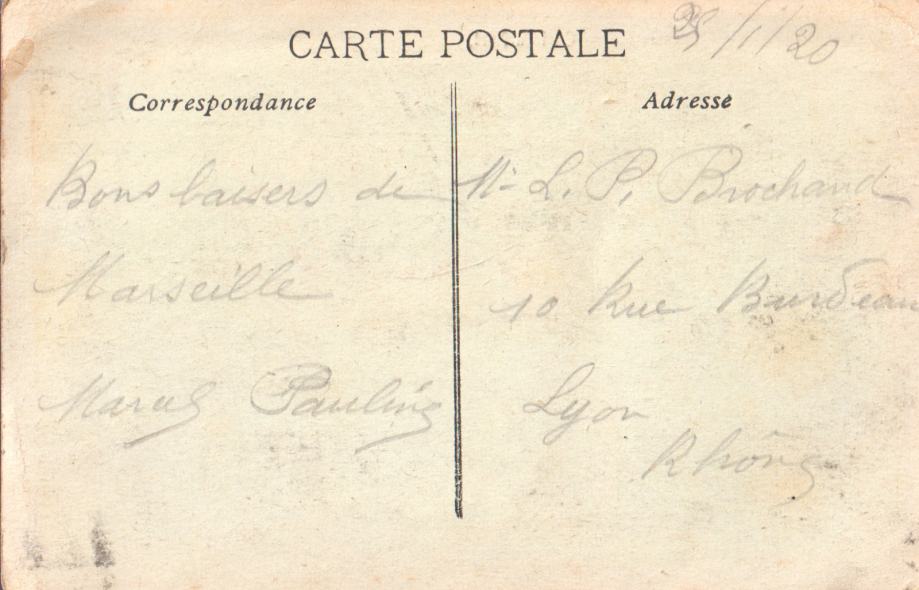 CARTE POSTALE
25/1/20
Correspondance
Bons baisers de
Marseille
Marcel Pauline
Adresse
Mr L. P. Brochand
10 Rue Burdeau
Lyon
Rhône